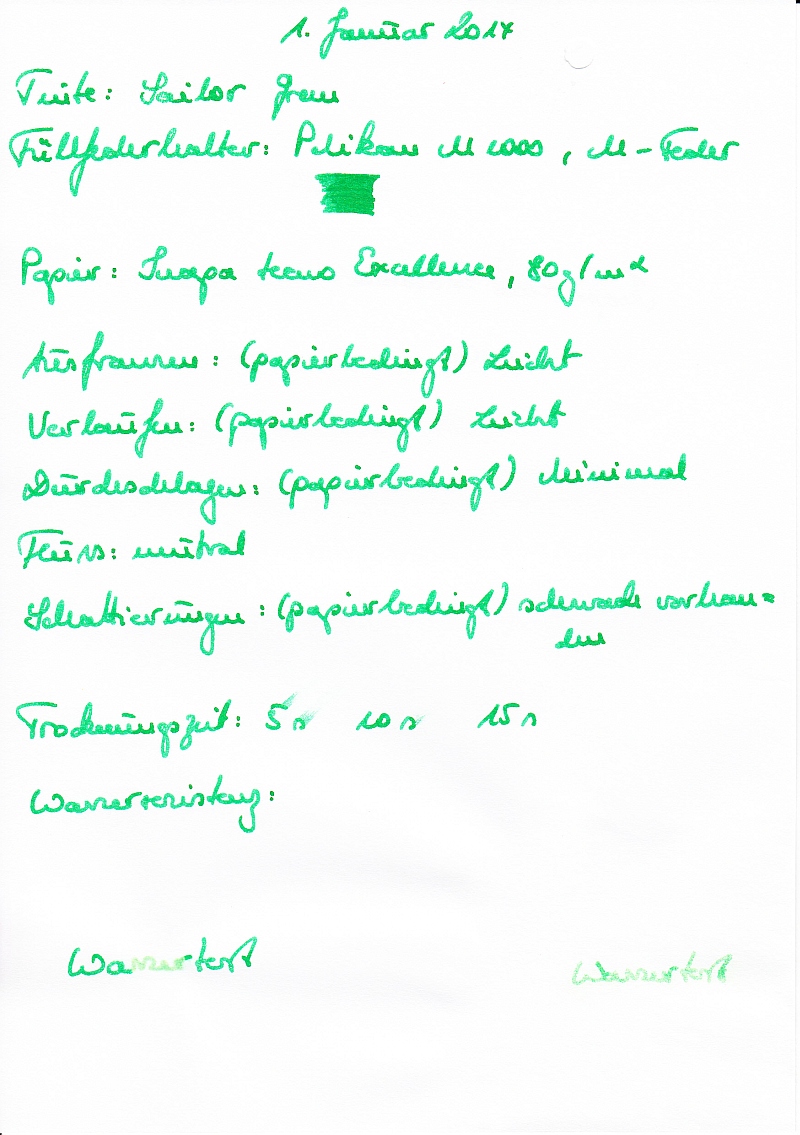 1. Januar 2017
Tinte: Sailor Green
Füllfederhalter: Pelikan M 1000, M-Feder
Papier: Inapa tecno Excellence, 80g/m²
Ausfransen: (papierbedingt) Leicht
Verlaufen: (papierbedingt) Leicht
Durchschlagen: (papierbedingt) Minimal
Fluss: neutral
Schattierungen: (papierbedingt) schwach vorhan=
den
Trocknungszeit: 5s 10s 15s
Wasserresistenz:
Wassertest Wassertest